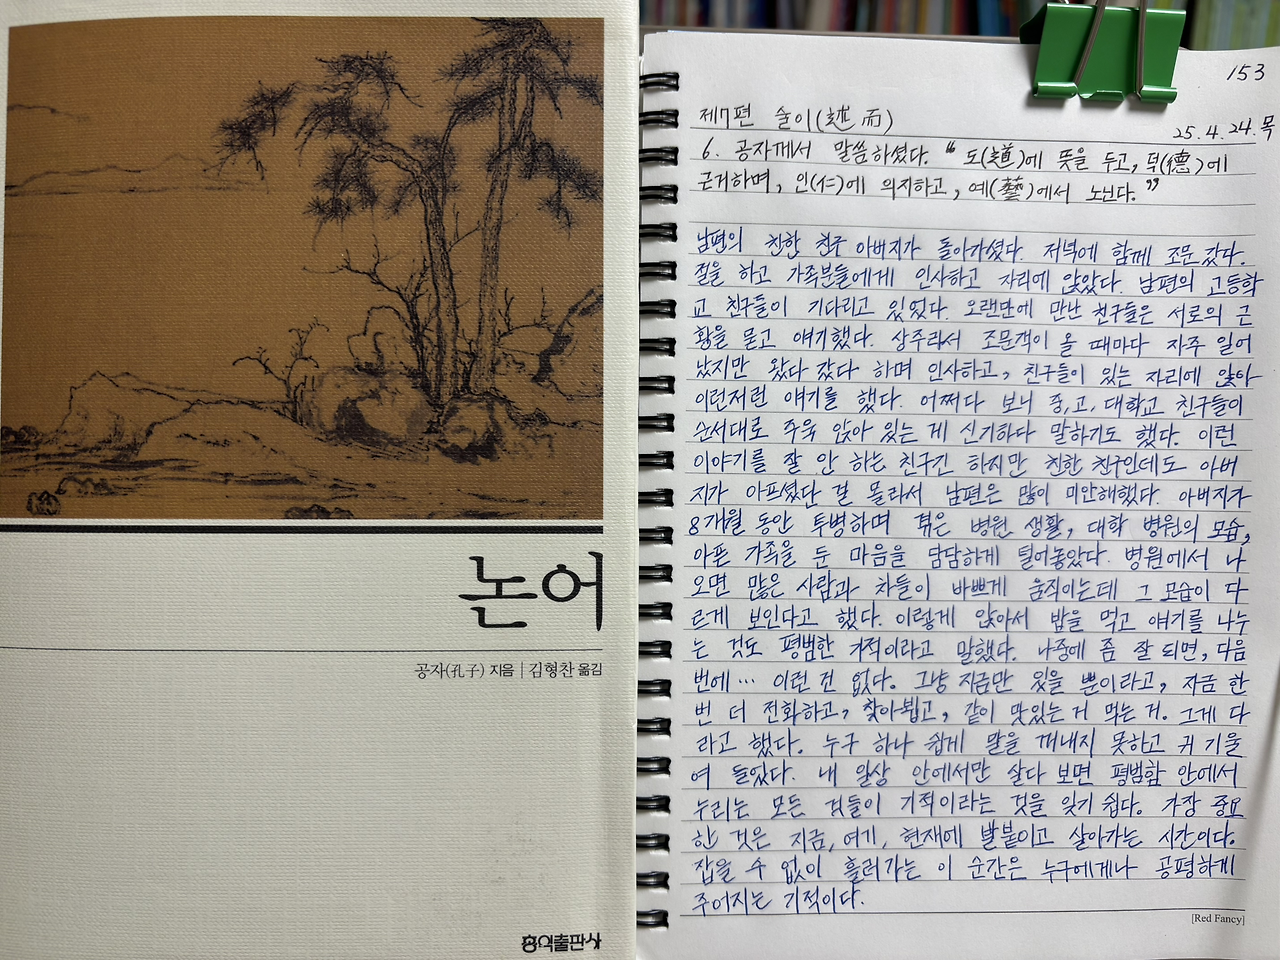 논어
공자(孔子) 지음 | 김형찬 옮김
홍익출판사
153
제7편 술이(述而)
25.4.24.목
6. 공자께서 말씀하셨다. "도(道)에 뜻을 두고, 덕(德)에
근거하며, 인(仁)에 의지하고, 예(藝)에서 노닌다."
남편의 친한 친구 아버지가 돌아가셨다. 저녁에 함께 조문 갔다.
절을 하고 가족분들에게 인사하고 자리에 앉았다. 남편의 고등학
교 친구들이 기다리고 있었다. 오랜만에 만난 친구들은 서로의 근
황을 묻고 얘기했다. 상주라서 조문객이 올 때마다 자주 일어
났지만 왔다 갔다 하며 인사하고, 친구들이 있는 자리에 앉아
이런저런 얘기를 했다. 어쩌다 보니 중,고,대학교 친구들이
순서대로 주욱 앉아 있는 게 신기하다 말하기도 했다. 이런
이야기를 잘 안 하는 친구긴 하지만 친한 친구인데도 아버
지가 아프셨단 걸 몰라서 남편은 많이 미안해했다. 아버지가
8개월 동안 투병하며 겪은 병원 생활, 대학 병원의 모습,
아픈 가족을 둔 마음을 담담하게 털어놓았다. 병원에서 나
오면 많은 사람과 차들이 바쁘게 움직이는데 그 모습이 다
르게 보인다고 했다. 이렇게 앉아서 밥을 먹고 얘기를 나누
는 것도 평범한 기적이라고 말했다. 나중에 좀 잘 되면, 다음
번에… 이런 건 없다. 그냥 지금만 있을 뿐이라고, 지금 한
번 더 전화하고, 찾아뵙고, 같이 맛있는 거 먹는 거. 그게 다
라고 했다. 누구 하나 쉽게 말을 꺼내지 못하고 귀 기울
여 들었다. 내 일상 안에서만 살다 보면 평범함 안에서
누리는 모든 것들이 기적이라는 것을 잊기 쉽다. 가장 중요
한 것은 지금, 여기, 현재에 발붙이고 살아가는 시간이다.
잡을 수 없이 흘러가는 이 순간은 누구에게나 공평하게
주어지는 기적이다.
[Red Fancy]